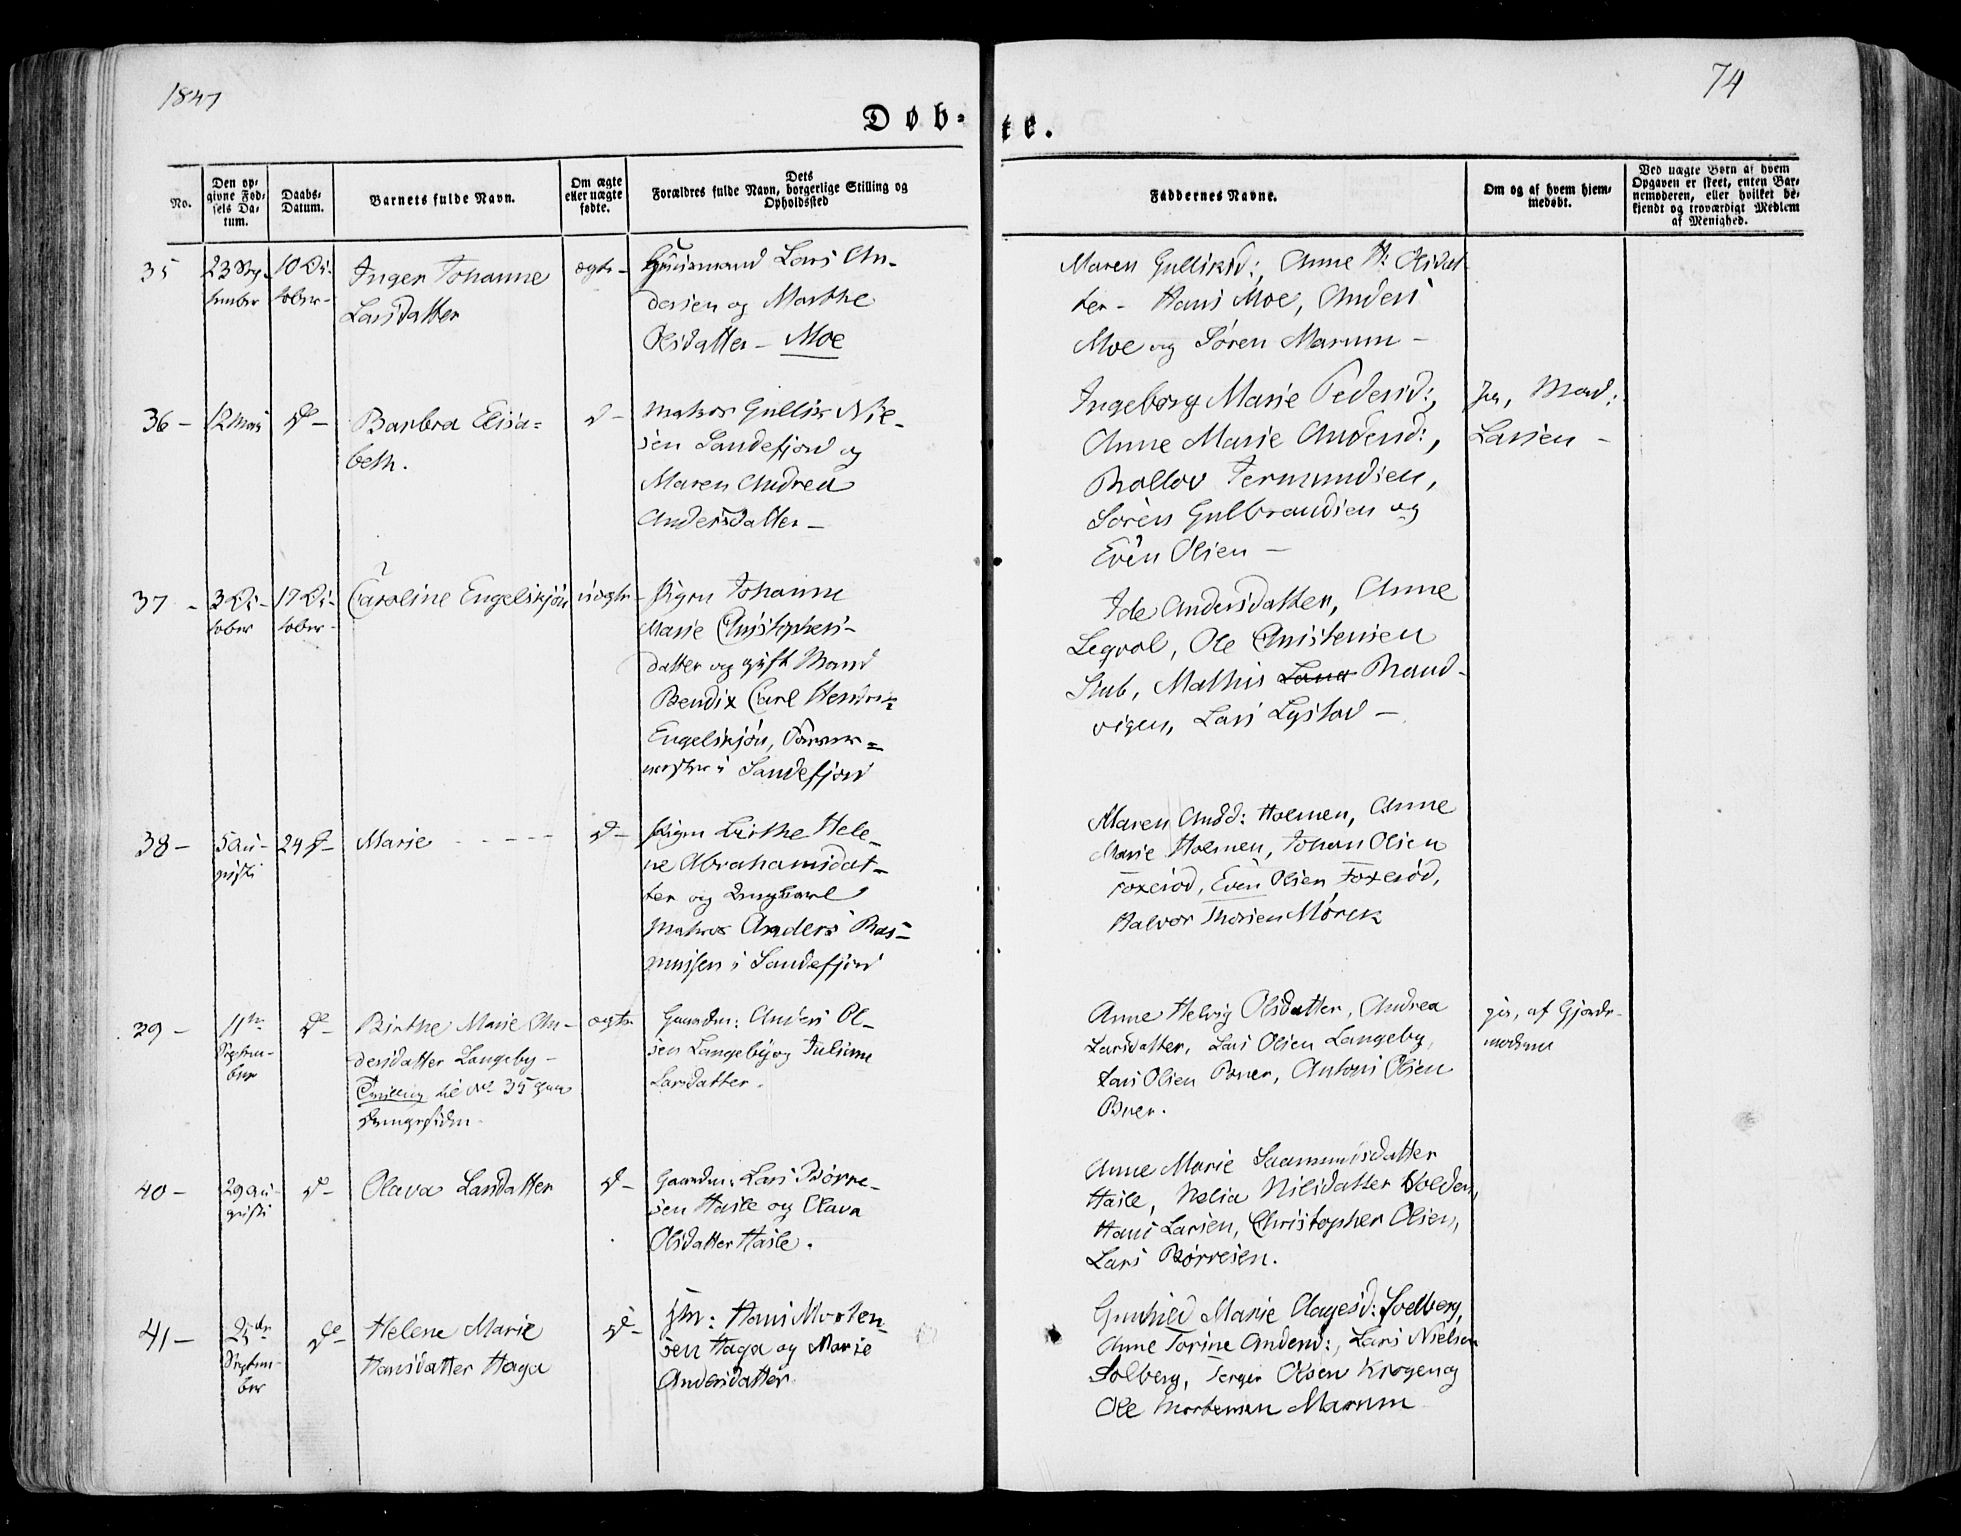 1847
74
Døb-
te.
No.
Den op-
givne Fød-
sels Da-
tum.
Daabs-
Datum.
Barnets fulde Navn.
Om ægte
eller uægte
fødte.
Dets
Forældres fulde Navn, borgerlige Stilling og
Opholdssted
Faddernes Navne.
Om og af hvem hjem-
medøbt.
Ved uægte Børn af hvem
Opgaven er skeet, enten Bar-
nemoderen, eller hvilket be-
kjendt og troværdigt Medlem
af Menighed.
35
23 Sep-
tember
10 Oc-
tober-
Inger Johanne
Larsdatter
ægte-
Huusmand Lars An-
dersen og Marthe
Olsdatter - Moe
Maren Gulliksd:, Anne H: Olsdat-
ter - Hans Moe, Anders
Moe og Sören Marum -
36 -
12 Mai
do -
Barbra Elisa=
beth.
do -
Matros Gullik Niel-
sen Sandefjord og
Maren Andrea
Andersdatter -
Ingeborg Marie Pedersd:,
Anne Marie Andersd:,
Rollov Tormundsen,
Sören Gulbrandsen og
Even Olsen -
Ja, Mad:
Larsen -
37 -
3 Oc-
tober
17 Oc-
tober-
Caroline Engelskjön
uægte-
Pigen Johanne
Marie Christophers-
datter og gift Mand
Bendix Carl Henrik
Engelskjön,
mester i Sandefjord
Ide Andersdatter, Anne
Legvol, Ole Christensen
Stub, Mathis Brand-
vigen, Lars Lystad -
38 -
5 Au-
gusti
24 do -
Marie - - - -
do -
Pigen Birthe Hele-
ne Abrahamsdat-
ter og Ungkarl
Matros Anders Ras-
mussen i Sandefjord
Maren Andd: Holmen, Anne
Marie Holmen, Johan Olsen
Foxeröd, Even Olsen Foxeröd,
Halvor Thorsen Mörck
39 -
11te
Septem-
ber
do -
Birthe Marie An-
dersdatter Langeby -
Tvilling til No 35 paa
Drengesiden.
ægte
Gaardm: Anders Ol-
sen Langeby og Juliane
Larsdatter.
Anne Helvig Olsdatter, Andrea
Larsdatter, Lars Olsen Langeby,
Lars Olsen Buer, Antoni Olsen
Buer.
ja, af Gjorde-
moderen
40 -
29 Au-
gusti
do -
Olava Larsdatter
do -
Gaardm: Lars Börre-
sen Hasle og Olava
Olsdatter Hasle.
Anne Marie Saamundsdatter
Hasle, Nelia Nilsdatter
Hans Larsen, Christopher Olsen,
Lars Börresen.
41 -
25de
Septem-
ber
do -
Helene Marie
Hansdatter Haga
do -
Hm: Hans Morten-
sen Haga og Marie
Andersdatter
Gunhild Marie Aagesd: Soelberg,
Anne Torine Andersd:, Lars Nielsen
Solberg, Torger Olsen Krogen og
Ole Mortensen Marum